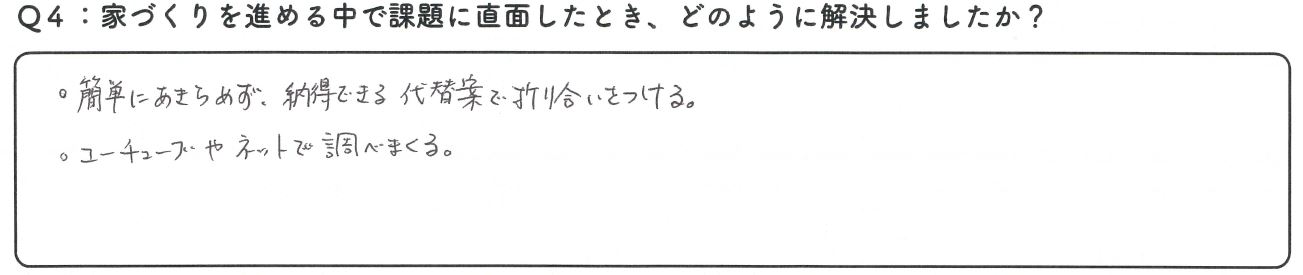 Q4：家づくりを進める中で課題に直面したとき、どのように解決しましたか？
。簡単にあきらめず、納得できる代替案で折り合いをつける。
。ユーチューブやネットで調べまくる。